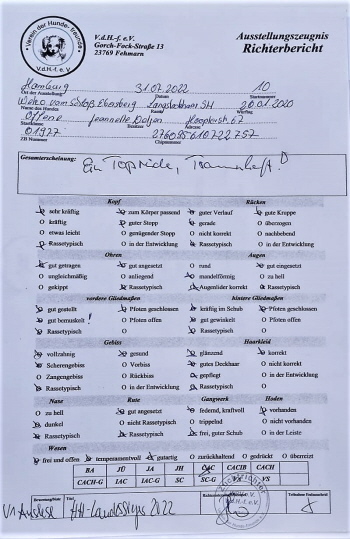 Verein der Hunde-Freunde
V.d.H.-f. e.V.
V.d.H.-f. e.V.
Gorch-Fock-Straße 13
23769 Fehmarn
Ausstellungszeugnis
Richterbericht
Hamburg 31.07.2022 10
Ort der Ausstellung Datum Startnummer
Langhaarchi SH 20.01.2020
Name des Hundes Rasse Wurftag
Offene Jeannette
Startklasse Besitzer Adresse
01927 276095610722757
ZB Nummer Chipnummer
Gesamterscheinung:
Ein Toprüde, Traumhaft!
Kopf Rücken
sehr kräftig zum Körper passend guter Verlauf gute Kruppe
O kräftig guter Stopp gerade O überzogen
O etwas leicht O genügender Stopp O nicht korrekt O nachhebend
Rassetypisch O in der Entwicklung Rassetypisch O in der Entwicklung
Ohren Augen
gut getragen gut angesetzt O rund gut eingesetzt
O ungleichmäßig O anliegend mandelförmig O zu hell
O gekippt Rassetypisch Augenlider korrekt Rassetypisch
vordere Gliedmaßen hintere Gliedmaßen
gut gestellt Pfoten geschlossen kräftig im Schub Pfoten geschlossen
gut bemuskelt ! O Pfoten offen gut gewinkelt O Pfoten offen
Rassetypisch O Rassetypisch O
Gebiss Haarkleid
vollzahnig gesund glänzend korrekt
Scherengebiss O Vorbiss guter Deckhaar O nicht korrekt
O Zangengebiss O Rückbiss gepflegt O in der Entwicklung
Rassetypisch O in der Entwicklung Rassetypisch O
Nase Rute Gangwerk Hoden
O zu hell gut angesetzt federnd, kraftvoll vorhanden
dunkel O nicht Rassetypisch O trippelnd O nicht vorhanden
Rassetypisch Rassetypisch frei, guter Schub O in der Leiste
Wesen
frei und offen temperamentvoll gutartig O zurückhaltend O gedrückt O überreizt
BA JÜ JA JH CAC CACIB CACH
CACH-G IAC IAC-G SC SC-G VX VS
Bewertung/Note Titel Teilnahme Endausscheid
V1 HH-Landessieger 2022